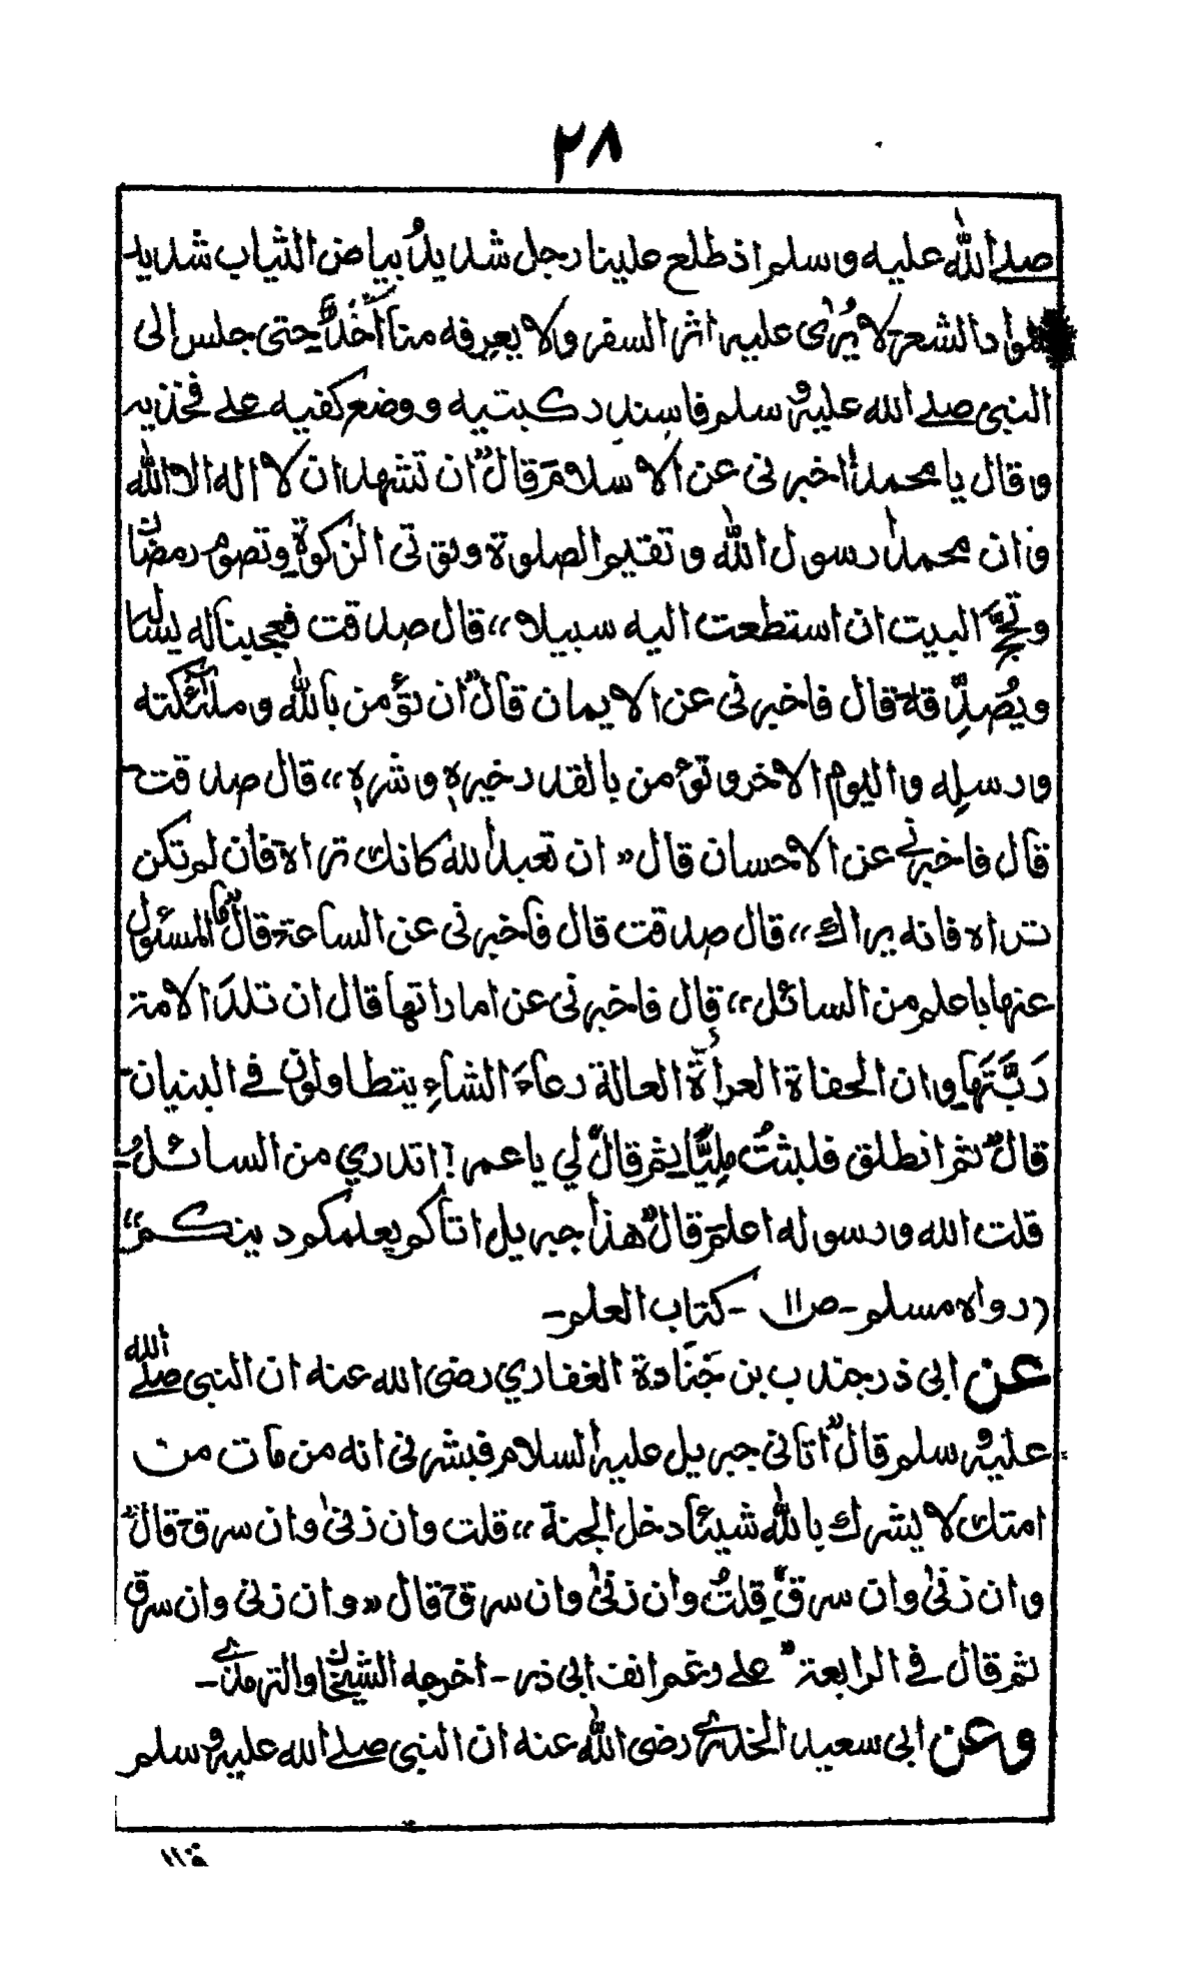 ٢٨
صلے اللہ علیه وسلم اذ طلع علینا رجل شدیدُ بیاض الثیاب شدید
سواد الشعر لا یُرٰی علیه اثر السفر ولا یعرفه منا احدٌ حتی جلس الی
النبی صلے الله علیه وسلم فاسند رکبتیه ووضع کفیه علے فخذیه
وقال یا محمد اخبرنی عن الاسلام قال "ان تشهد ان لا اله الا الله
وان محمدا رسول الله وتقیم الصلوة وتؤتی الزکوة وتصوم رمضان
وتحجَّ البیت ان استطعت الیه سبیلا" قال صدقت فعجبنا له یسأله
ویُصَدِّقه قال فاخبرنی عن الایمان قال "ان تؤمن بالله وملئکته
ورسله والیوم الاخر وتؤمن بالقدر خیرہٖ وشرہٖ" قال صدقت
قال فاخبرنی عن الاحسان قال "ان تعبد الله کانك تراه فان لم تکن
تراه فانه یراك" قال صدقت قال فاخبرنی عن الساعة قال "ما المسئول
عنها باعلم من السائل" قال فاخبرنی عن اماراتها قال ان تلدَ الامة
رَبَّتَها وان الحفاة العراة العالة رعاءَ الشاءِ یتطاولون فے البنیان
قال ثم انطلق فلبثتُ مَلِیًّا ثم قال لي یا عمر! اتدري من السائل
قلت الله ورسوله اعلم قال "هذا جبریل اتاکم یعلمکم دینکم"
(رواه مسلم - ص ١١ - کتاب العلم -
عن ابی ذر جندب بن جُنَادة الغفاري رضی الله عنه ان النبی صلے الله
علیه وسلم قال "اتانی جبریل علیه السلام فبشرنی انه من مات من
امتك لا یشرك بالله شیئا دخل الجنة" قلت وان زنیٰ وان سرق قال "
وان زنیٰ وان سرق قلتُ وان زنیٰ وان سرق قال "وان زنی وان سرق
ثم قال فے الرابعة " علے رغم انف ابی ذر - اخرجه الشیخان والترمذی -
وعن ابی سعید الخدری رضی الله عنه ان النبی صلے الله علیه وسلم